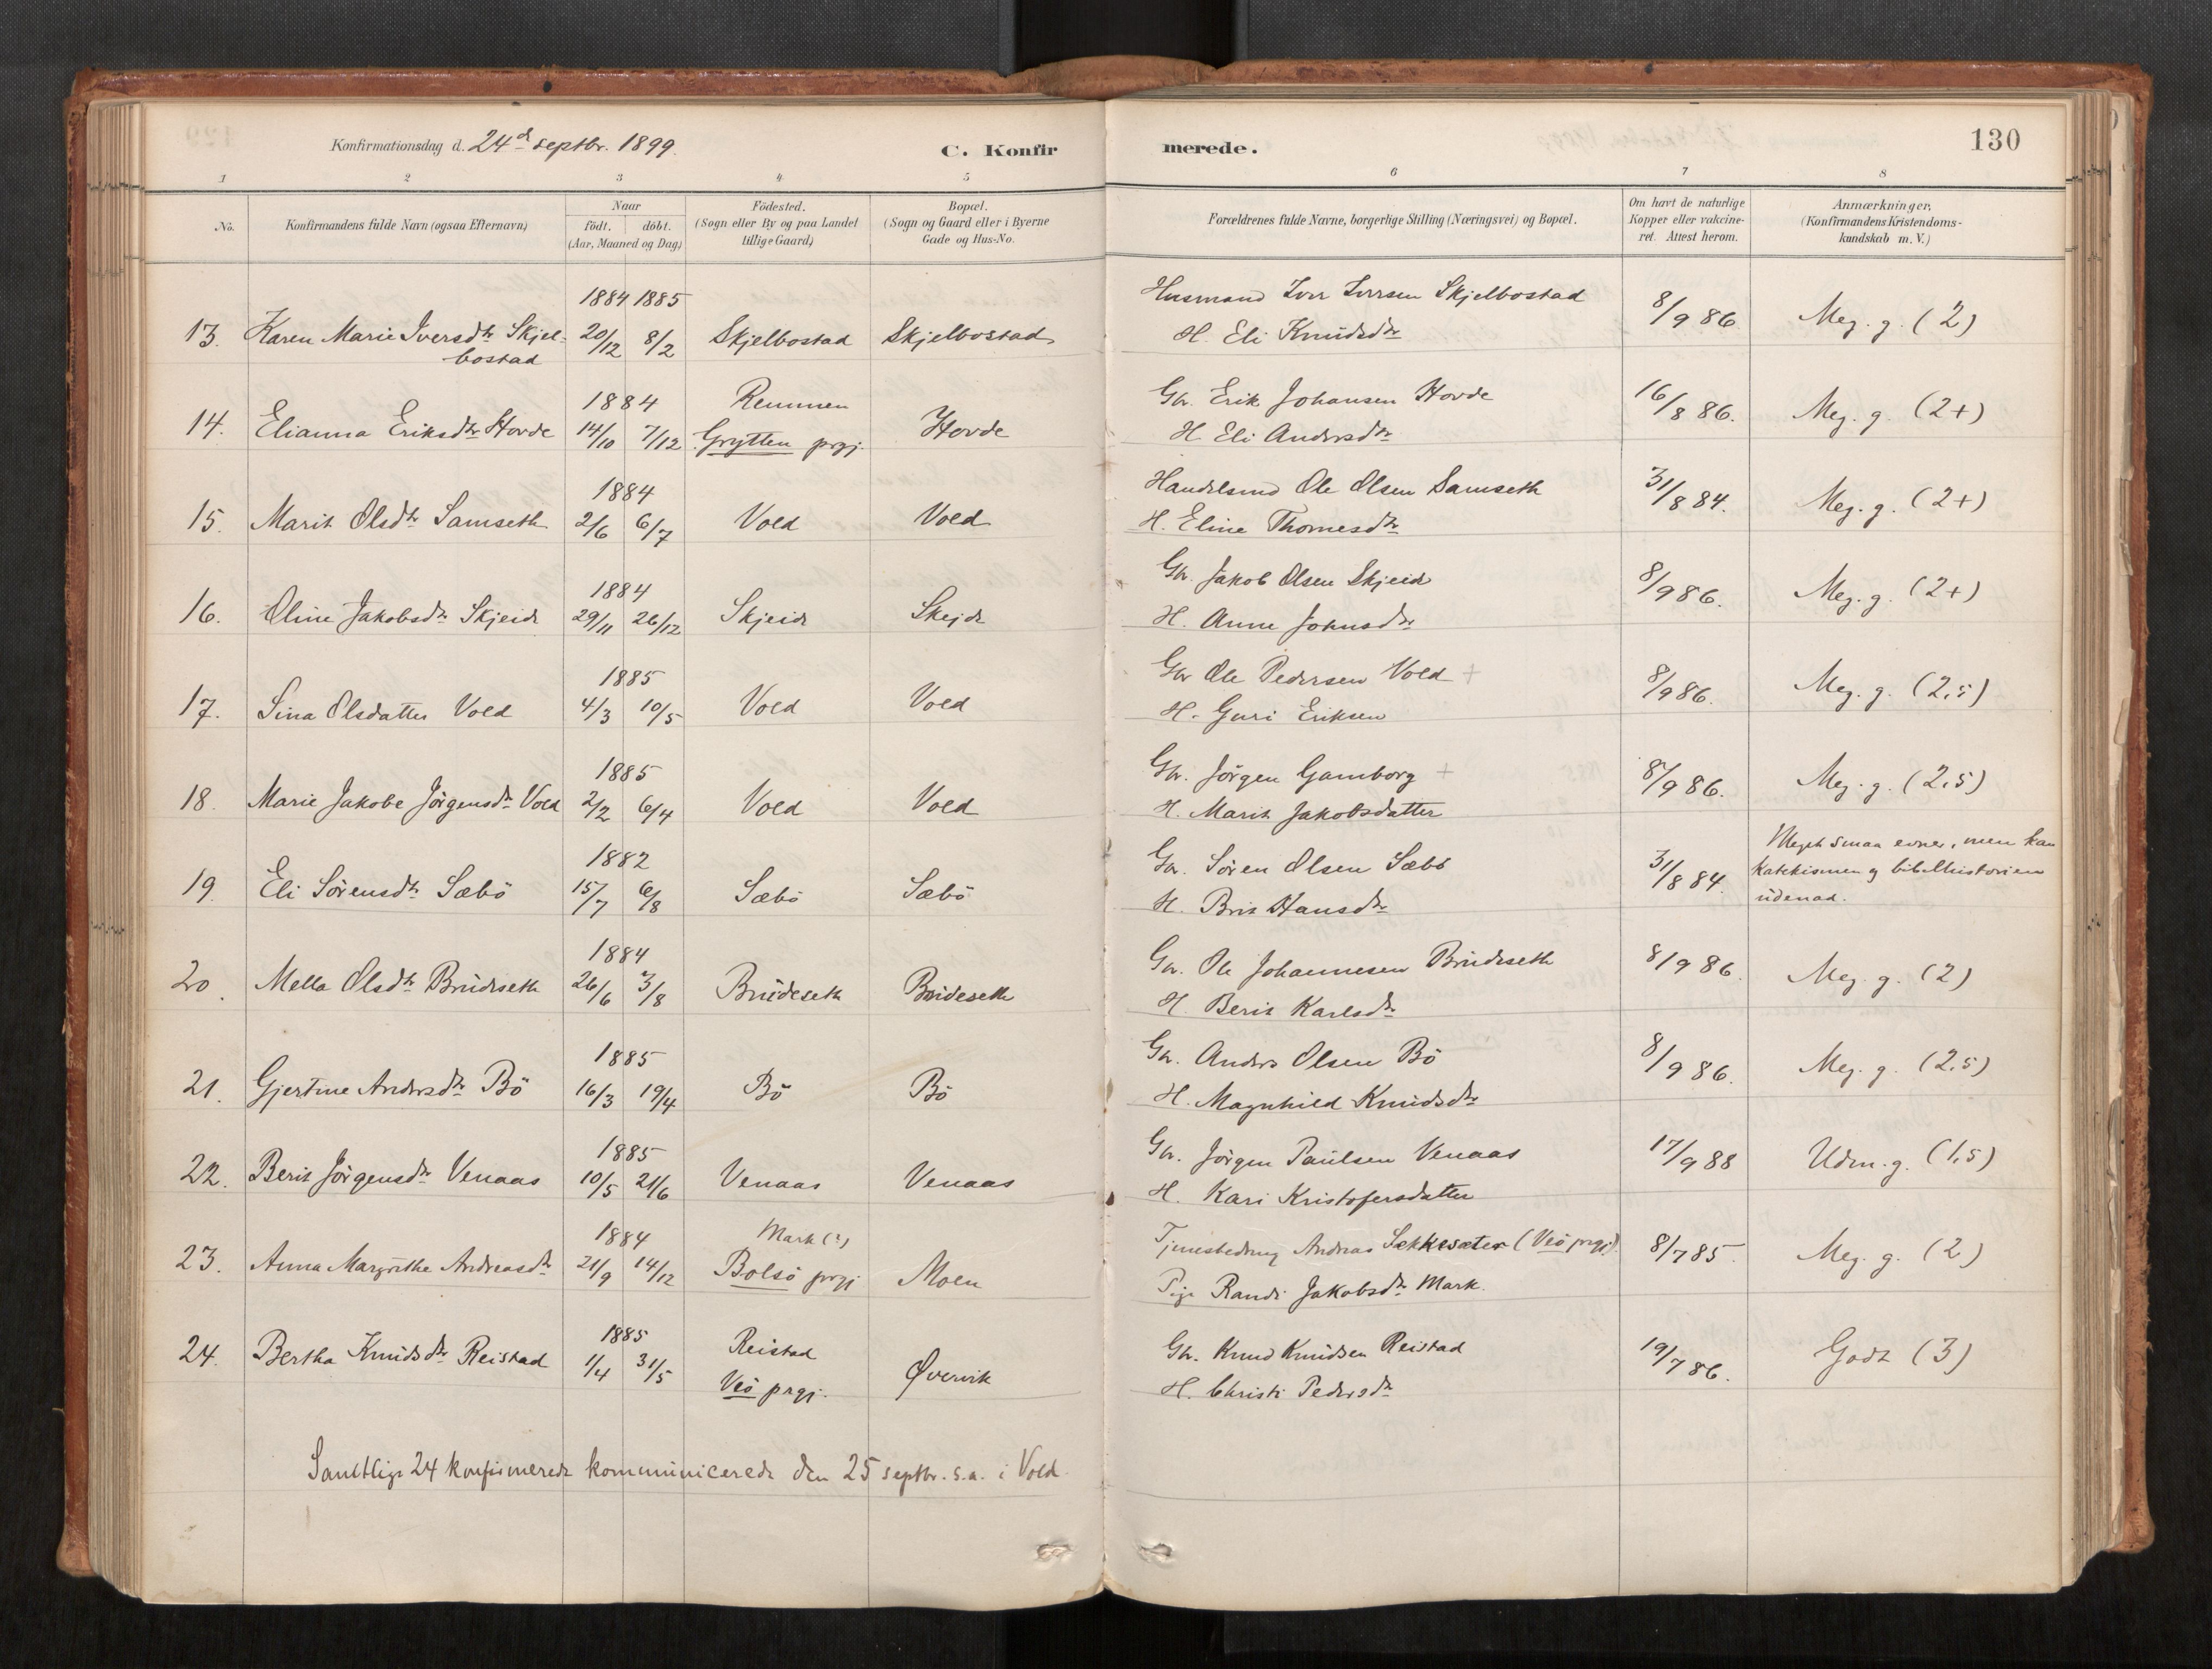 Konfirmationsdag d. 24d septbr. 1899.
C. Konfirmerede.
130
1 2 3 4 5 6 7 8
No.
Konfirmandens fulde Navn (ogsaa Efternavn)
Naar
födt. döbt.
(Aar, Maaned og Dag)
Födested.
(Sogn eller By og paa Landet
tillige Gaard)
Bopæl.
(Sogn og Gaard eller i Byerne
Gade og Hus-No.
Forældrenes fulde Navne, borgerlige Stilling (Næringsvei) og Bopæl.
Om havt de naturlige
Kopper eller vakcine-
ret. Attest herom.
Anmærkninger,
(Konfirmandens Kristendoms-
kundskab m. V.)
1884 1885 Husmand Iver Iversen Skjelbostad
13. Karen Marie Iversdtr Skjel- 20/12 8/2 Skjelbostad Skjelbostad H. Eli Knudsdtr 8/9 86 Meg. g. (2)
bostad
1884 Remmen Gbr. Erik Johansen Hovde
14. Elianna Eriksdtr Hovde 14/10 7/12 Grytten prgj. Hovde H. Eli Andersdtr 16/8 86. Meg. g. (2+)
1884 Handelsmd Ole Olsen Samseth
15. Marit Olsdtr Samseth 2/6 6/7 Vold Vold H. Eline Thomesdtr 31/8 84. Meg. g. (2+)
1884 Gbr. Jakob Olsen Skjeid
16. Oline Jakobsdtr Skjeid 29/11 26/12 Skjeid Skejd H. Anne Johnsdtr 8/9 86. Meg. g. (2+)
1885 Gbr Ole Pedersen Vold +
17. Sina Olsdatter Vold 4/3 10/5 Vold Vold H. Guri Eriksen 8/9 86. Meg. g. (2,5)
1885 Gbr. Jörgen Gamborg +
18. Marie Jakobe Jörgensdtr Vold 2/2 6/4 Vold Vold H. Marit Jakobsdatter 8/9 86. Meg. g. (2,5)
1882 Gbr. Sören Olsen Sæbö Meget smaa evner, men kan
19. Eli Sörensdtr Sæbö 15/7 6/8 Sæbö Sæbö H. Brit Hansdtr 31/8 84. katekismen og bibelhistorien
udenad.
1884 Gbr. Ole Johannesen Brudeseth
20. Mella Olsdtr Brudeseth 26/6 3/8 Brudeseth Brudeseth H. Berit Karlsdtr 8/9 86. Meg. g. (2)
1885 Gbr. Anders Olsen Bö
21. Gjertine Andersdtr Bö 16/3 19/4 Bö Bö H. Magnhild Knudsdtr 8/9 86. Meg. g. (2,5)
1885 Gbr. Jörgen Paulsen Venaas
22. Berit Jörgensdtr Venaas 10/5 21/6 Venaas Venaas H. Kari Kristofersdatter 17/9 88 Udm. g. (1,5)
1884 Mark (?) Tjenestedreng Andreas Sekkesæter (Veö prgj).
23. Anna Margrethe Andreasdtr 21/9 14/12 Bolsö prgj Moen Pige Randi Jakobsdtr Mark. 8/7 85. Meg. g. (2)
1885 Reistad Gbr. Knud Knudsen Reistad
24. Bertha Knudsdtr Reistad 1/4 31/5 Veö prgj. Øvervik H. Christi Pedersdtr 19/7 86. Godt (3)
Samtlige 24 konfirmerede kommunicerede den 25 septbr. s.a. i Vold.